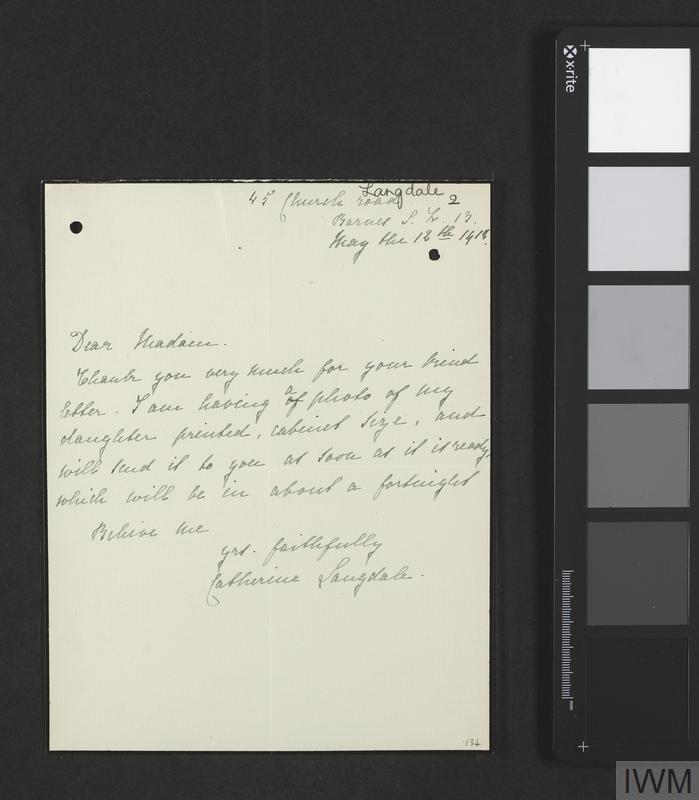 Langdale
2
45 Church road.
Barnes S. W. 13.
May the 12th 1918.
Dear Madam.
Thank you very much for your kind
letter. I am having a of photo of my
daughter printed, cabinet size, and
will send it to you as soon as it is ready,
which will be in about a fortnight
Believe me
yrs. faithfully
Catherine Langdale.
134
x·rite
mm
IWM